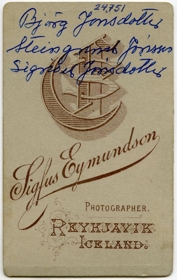 24751
Björg Jónsdóttir
Steingrímur Jónsson
Signður Jónsdóttir
Sigfus Eymundson
PHOTOGRAPHER.
REYKJAVIK
ICELAND.